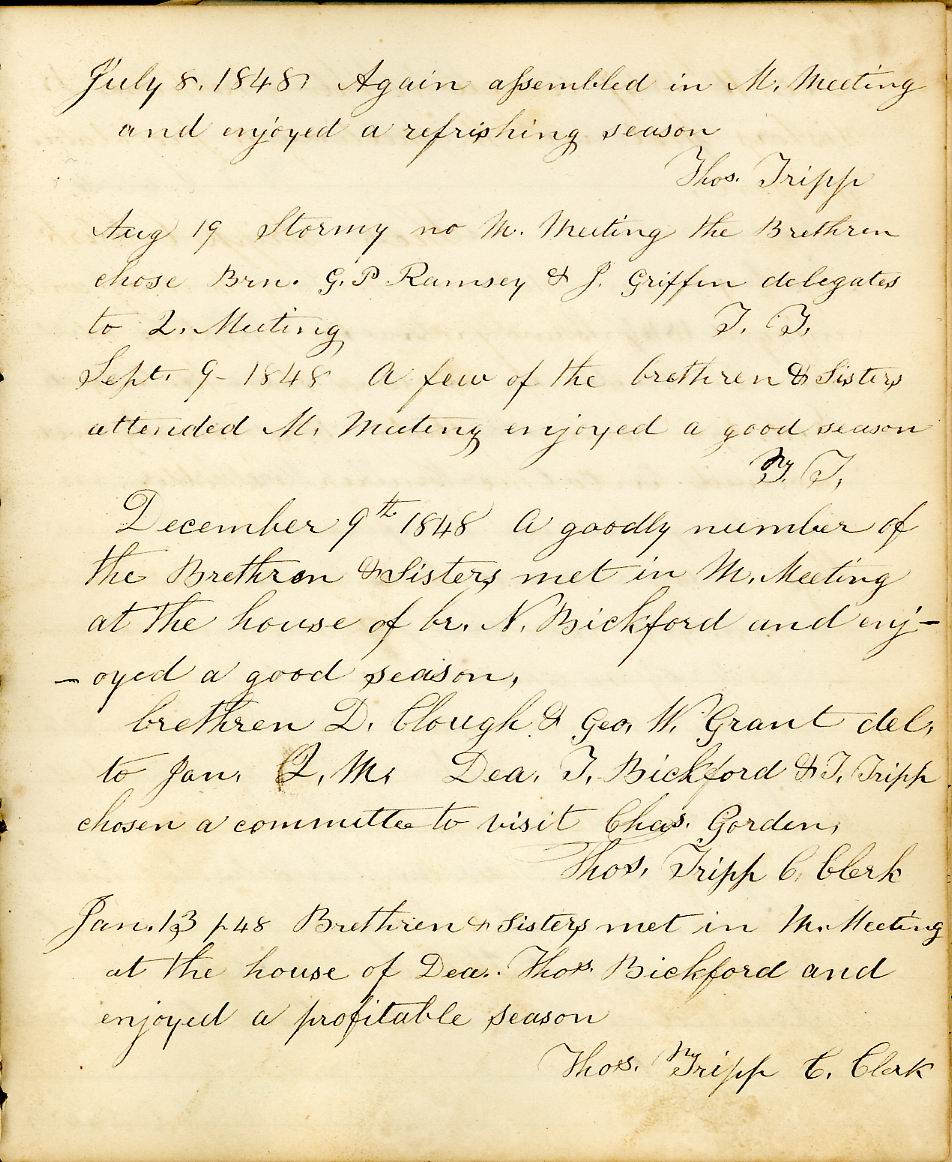 July 8, 1848 Again assembled in M. Meeting
and enjoyed a refrishing season
Thos. Tripp
Aug 19 Stormy no M. Meeting the Brethren
chose Brn. G. P Ramsey & J. Griffin delegates
to Q. Meeting T. T.
Sept. 9 - 1848 A few of the brethren & Sisters
attended M. Meeting enjoyed a good season
T. T.
December 9th 1848 A goodly number of
the Brethren & Sisters met in M. Meeting
at the house of br. N. Bickford and enj-
- oyed a good season,
brethren D. Clough & Geo. W. Grant del.
to Jan. Q. M. Dea. T. Bickford & T. Tripp
chosen a committee to visit Chas. Gorden,
Thos. Tripp C. Clerk
Jan. 13 48 Brethren & Sisters met in M. Meeting
at the house of Dea. Thos. Bickford and
enjoyed a profitable season
Thos. Tripp C. Clerk